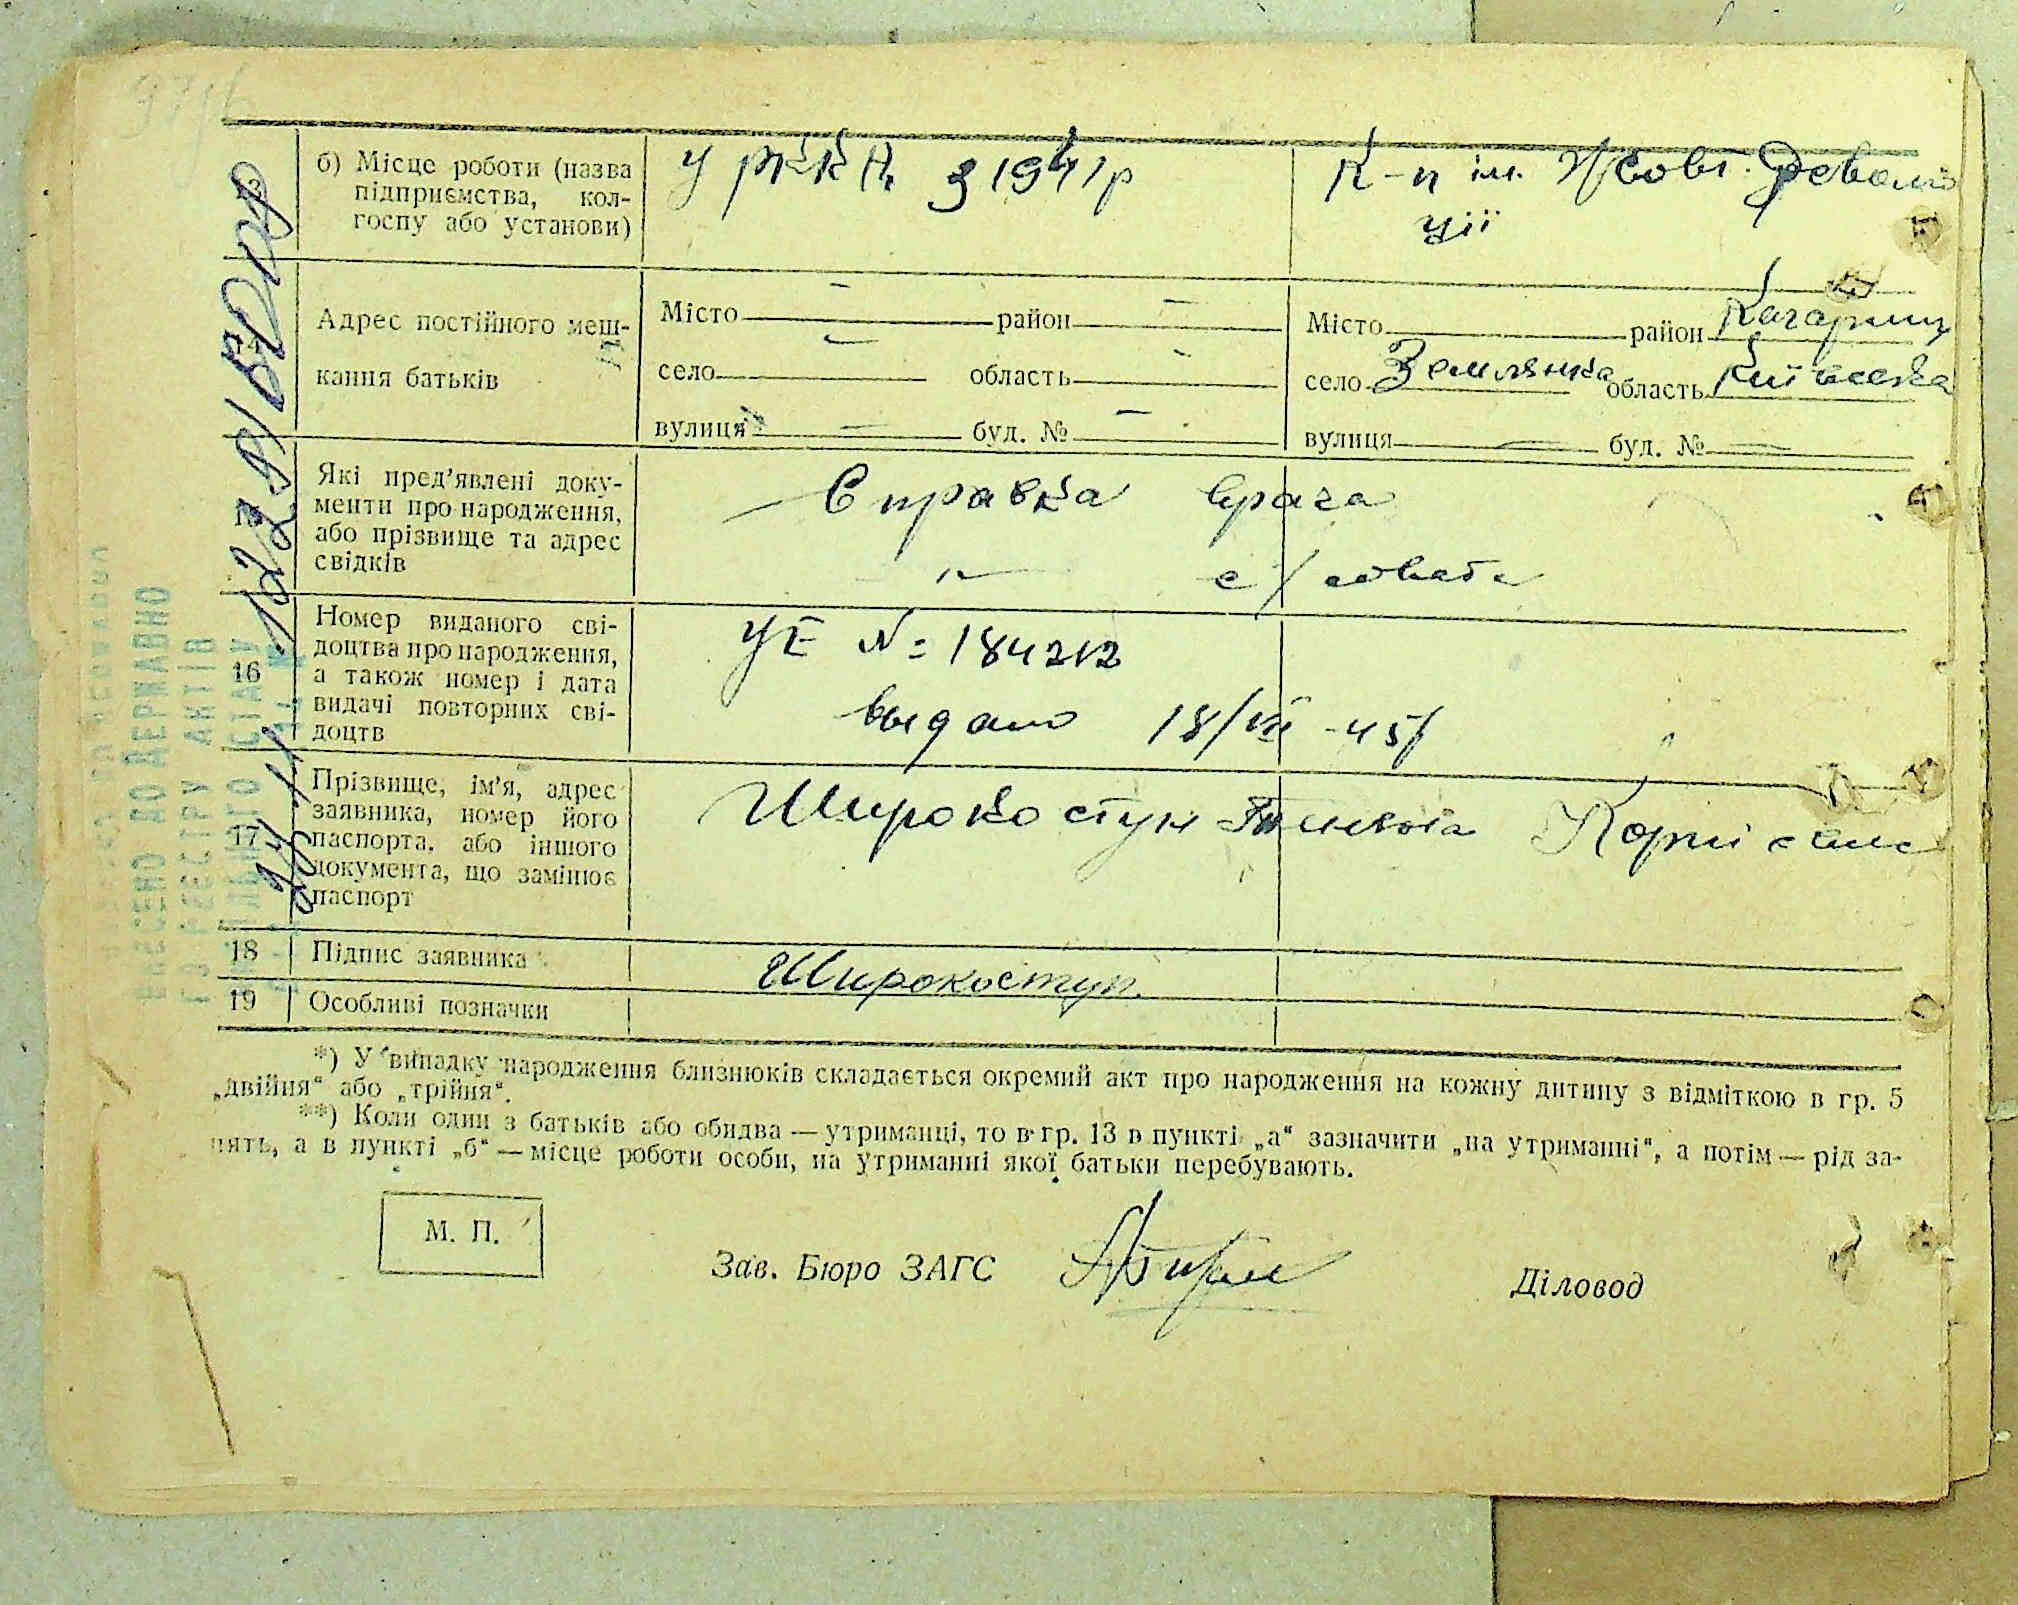 б) Місце роботи (назва
підприємства, кол-
госпу або установи)
У РККА з 1941р
К-п ім. Жовт. Револю
ції
Адрес постійного меш-
кання батьків
Місто — район —
село — область —
вулиця — буд. № —
Місто район Кагарлиц
село Землянка область Київська
вулиця — буд. № —
Які пред'явлені доку-
менти про народження,
або прізвище та адрес
свідків
Справка врача
—"— с/совета
16
Номер виданого сві-
доцтва про народження,
а також номер і дата
видачі повторних сві-
доцтв
УЕ № 184212
выдано 18/VII-45р
17
Прізвище, ім'я, адрес
заявника, номер його
паспорта, або іншого
документа, що замінює
паспорт
Широкоступ
18
Підпис заявника
Широкоступ.
19
Особливі позначки
*) У випадку народження близнюків складається окремий акт про народження на кожну дитину з відміткою в гр. 5
„двійня“ або „трійня“.
**) Коли один з батьків або обидва — утриманці, то в гр. 13 в пункті „а“ зазначити „на утриманні“, а потім — рід за-
нять, а в пункті „б“ — місце роботи особи, на утриманні якої батьки перебувають.
М. П.
Зав. Бюро ЗАГС
Діловод
ВНЕСЕНО ДО ДЕРЖАВНО
ГО РЕЄСТРУ АКТІВ